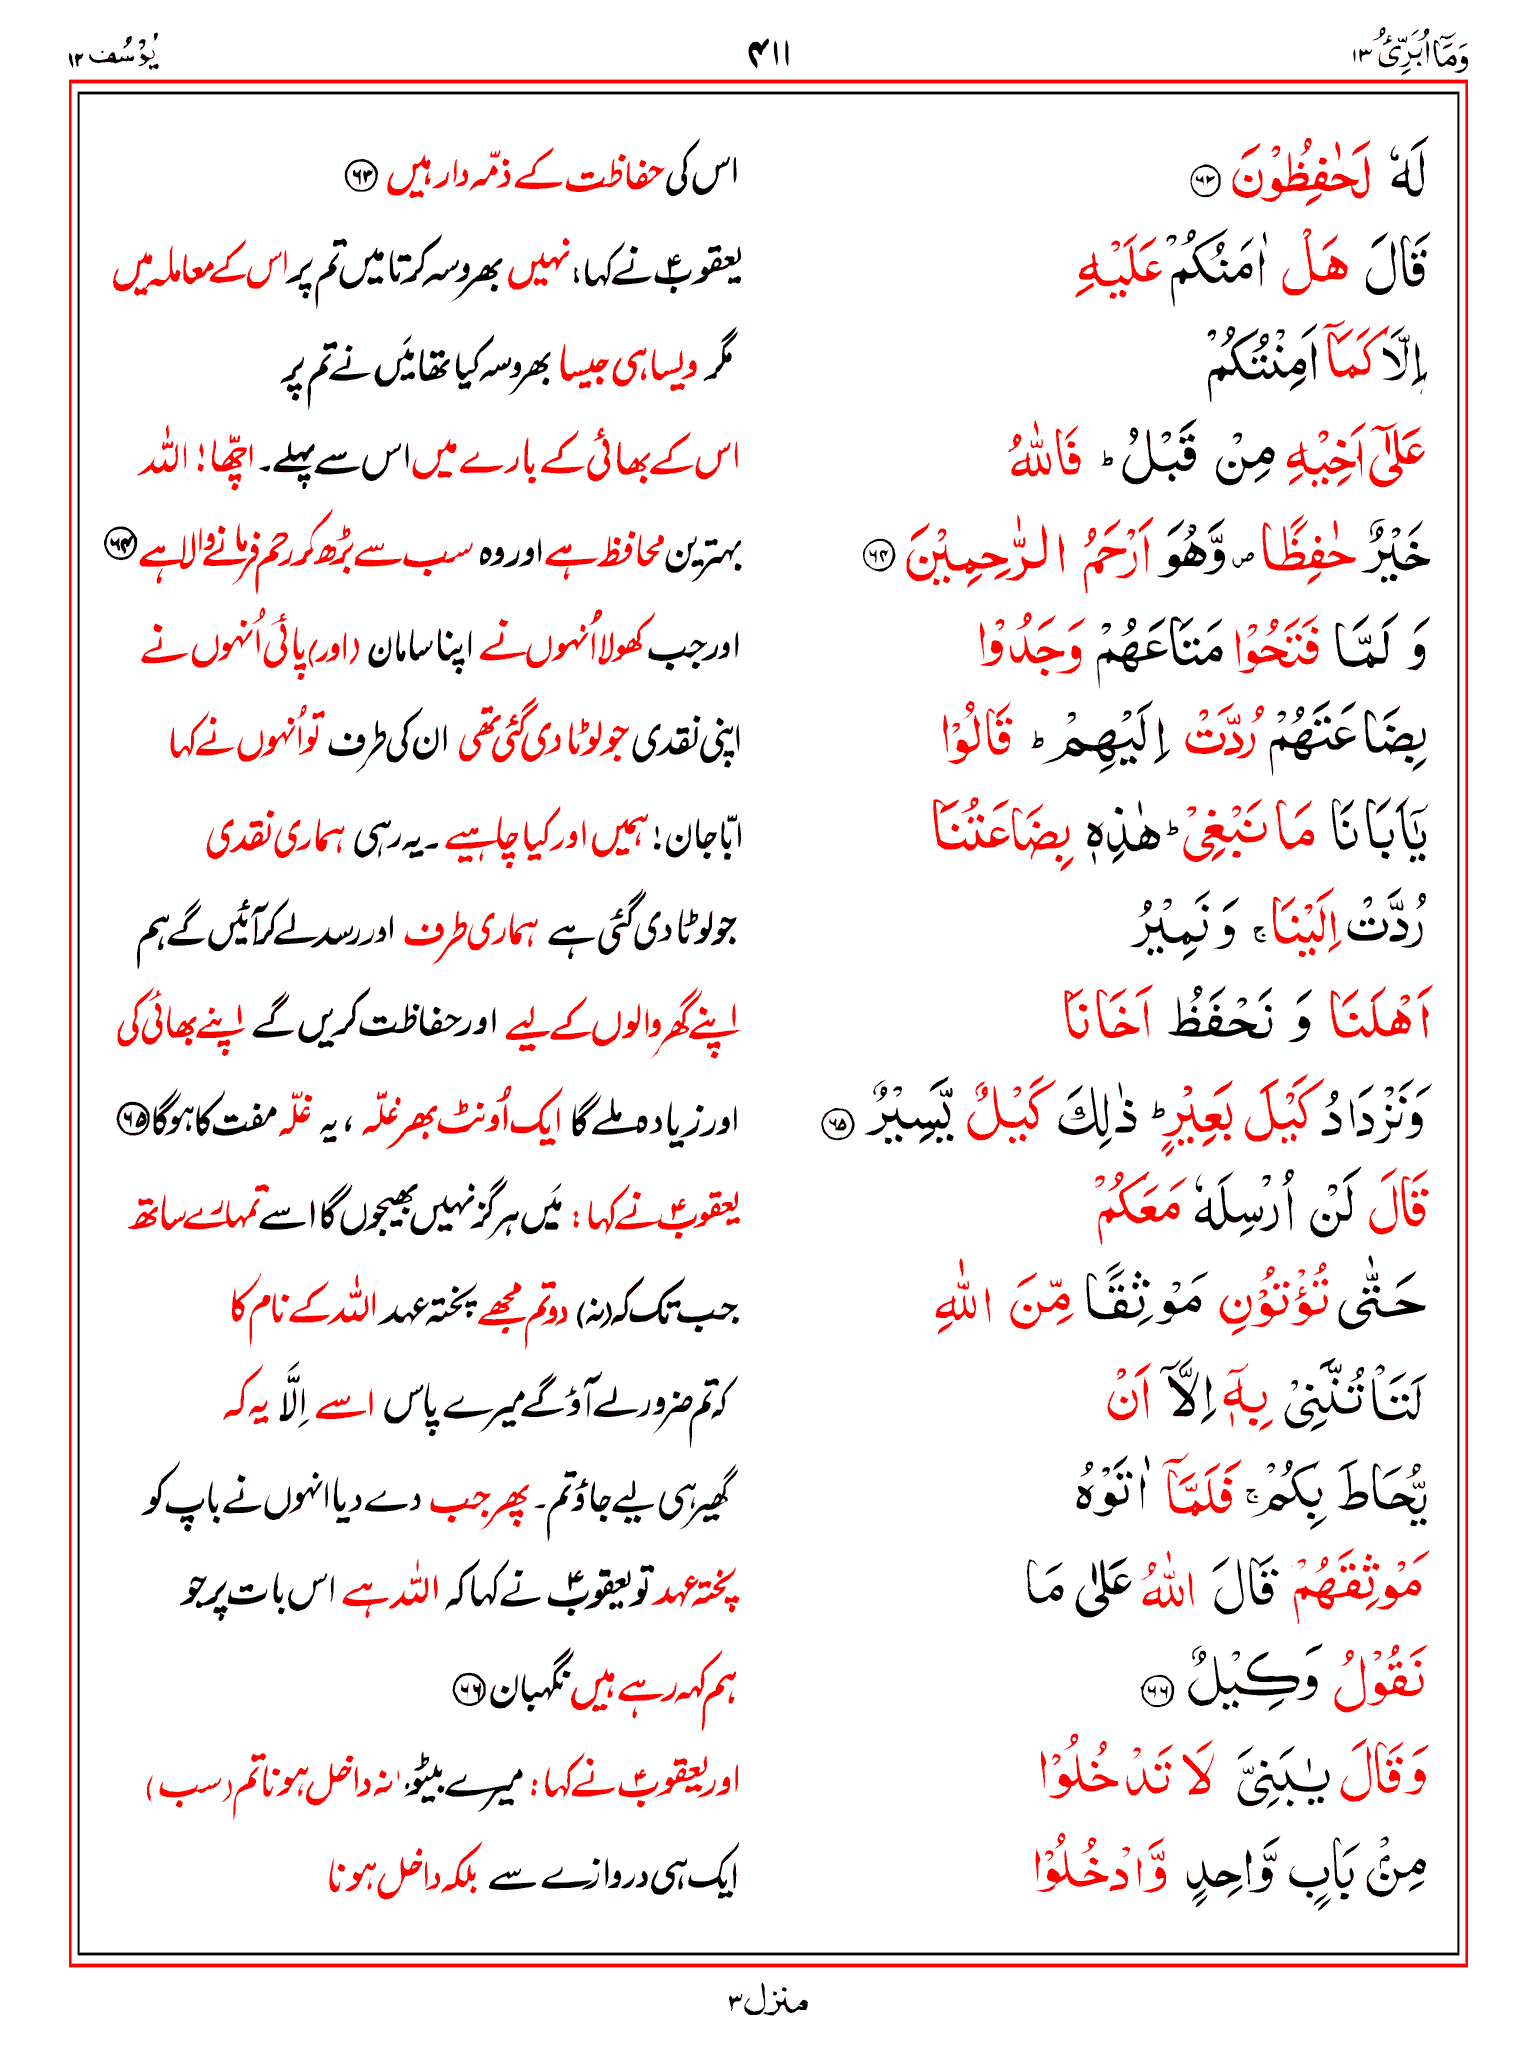 وَمَآ اُبَرِّئُ ۱۳
۴۱۱
یُوْسُف ۱۲
لَهٗ لَحٰفِظُوْنَ ﴿۶۳﴾
اس کی حفاظت کے ذمّہ دار ہیں ﴿۶۳﴾
قَالَ هَلْ اٰمَنُكُمْ عَلَيْهِ
یعقوبؑ نے کہا: نہیں بھروسہ کرتا میں تم پر اس کے معاملہ میں
اِلَّا كَمَآ اَمِنْتُكُمْ
مگر ویسا ہی جیسا بھروسہ کیا تھا مَیں نے تم پر
عَلٰٓى اَخِيْهِ مِنْ قَبْلُ ؕ فَاللّٰهُ
اس کے بھائی کے بارے میں اس سے پہلے۔ اچّھا! اللہ
خَيْرٌ حٰفِظًا ۪ وَّهُوَ اَرْحَمُ الرّٰحِمِيْنَ ﴿۶۴﴾
بہترین محافظ ہے اور وہ سب سے بڑھ کر رحم فرمانے والا ہے ﴿۶۴﴾
وَ لَمَّا فَتَحُوْا مَتَاعَهُمْ وَجَدُوْا
اور جب کھولا اُنہوں نے اپنا سامان (اور) پائی اُنہوں نے
بِضَاعَتَهُمْ رُدَّتْ اِلَيْهِمْ ؕ قَالُوْا
اپنی نقدی جو لوٹا دی گئی تھی ان کی طرف تو اُنہوں نے کہا
يٰٓاَبَانَا مَا نَبْغِىْ ؕ هٰذِهٖ بِضَاعَتُنَا
ابّا جان! ہمیں اور کیا چاہیے۔ یہ رہی ہماری نقدی
رُدَّتْ اِلَيْنَا ۚ وَ نَمِيْرُ
جو لوٹا دی گئی ہے ہماری طرف اور رسد لے کر آئیں گے ہم
اَهْلَنَا وَ نَحْفَظُ اَخَانَا
اپنے گھر والوں کے لیے اور حفاظت کریں گے اپنے بھائی کی
وَنَزْدَادُ كَيْلَ بَعِيْرٍ ؕ ذٰلِكَ كَيْلٌ يَّسِيْرٌ ﴿۶۵﴾
اور زیادہ ملے گا ایک اُونٹ بھر غلّہ، یہ غلّہ مفت کا ہوگا ﴿۶۵﴾
قَالَ لَنْ اُرْسِلَهٗ مَعَكُمْ
یعقوبؑ نے کہا: مَیں ہرگز نہیں بھیجوں گا اسے تمہارے ساتھ
حَتّٰى تُؤْتُوْنِ مَوْثِقًا مِّنَ اللّٰهِ
جب تک کہ (نہ) دو تم مجھے پختہ عہد اللہ کے نام کا
لَتَاْتُنَّنِىْ بِهٖٓ اِلَّآ اَنْ
کہ تم ضرور لے آؤ گے میرے پاس اسے اِلَّا یہ کہ
يُّحَاطَ بِكُمْ ۚ فَلَمَّآ اٰتَوْهُ
گھیر ہی لیے جاؤ تم۔ پھر جب دے دیا انہوں نے باپ کو
مَوْثِقَهُمْ قَالَ اللّٰهُ عَلٰى مَا
پختہ عہد تو یعقوبؑ نے کہا کہ اللہ ہے اس بات پر جو
نَقُوْلُ وَكِيْلٌ ﴿۶۶﴾
ہم کہہ رہے ہیں نگہبان ﴿۶۶﴾
وَقَالَ يٰبَنِىَّ لَا تَدْخُلُوْا
اور یعقوبؑ نے کہا: میرے بیٹو! نہ داخل ہونا تم (سب)
مِنْۢ بَابٍ وَّاحِدٍ وَّادْخُلُوْا
ایک ہی دروازے سے بلکہ داخل ہونا
منزل ۳